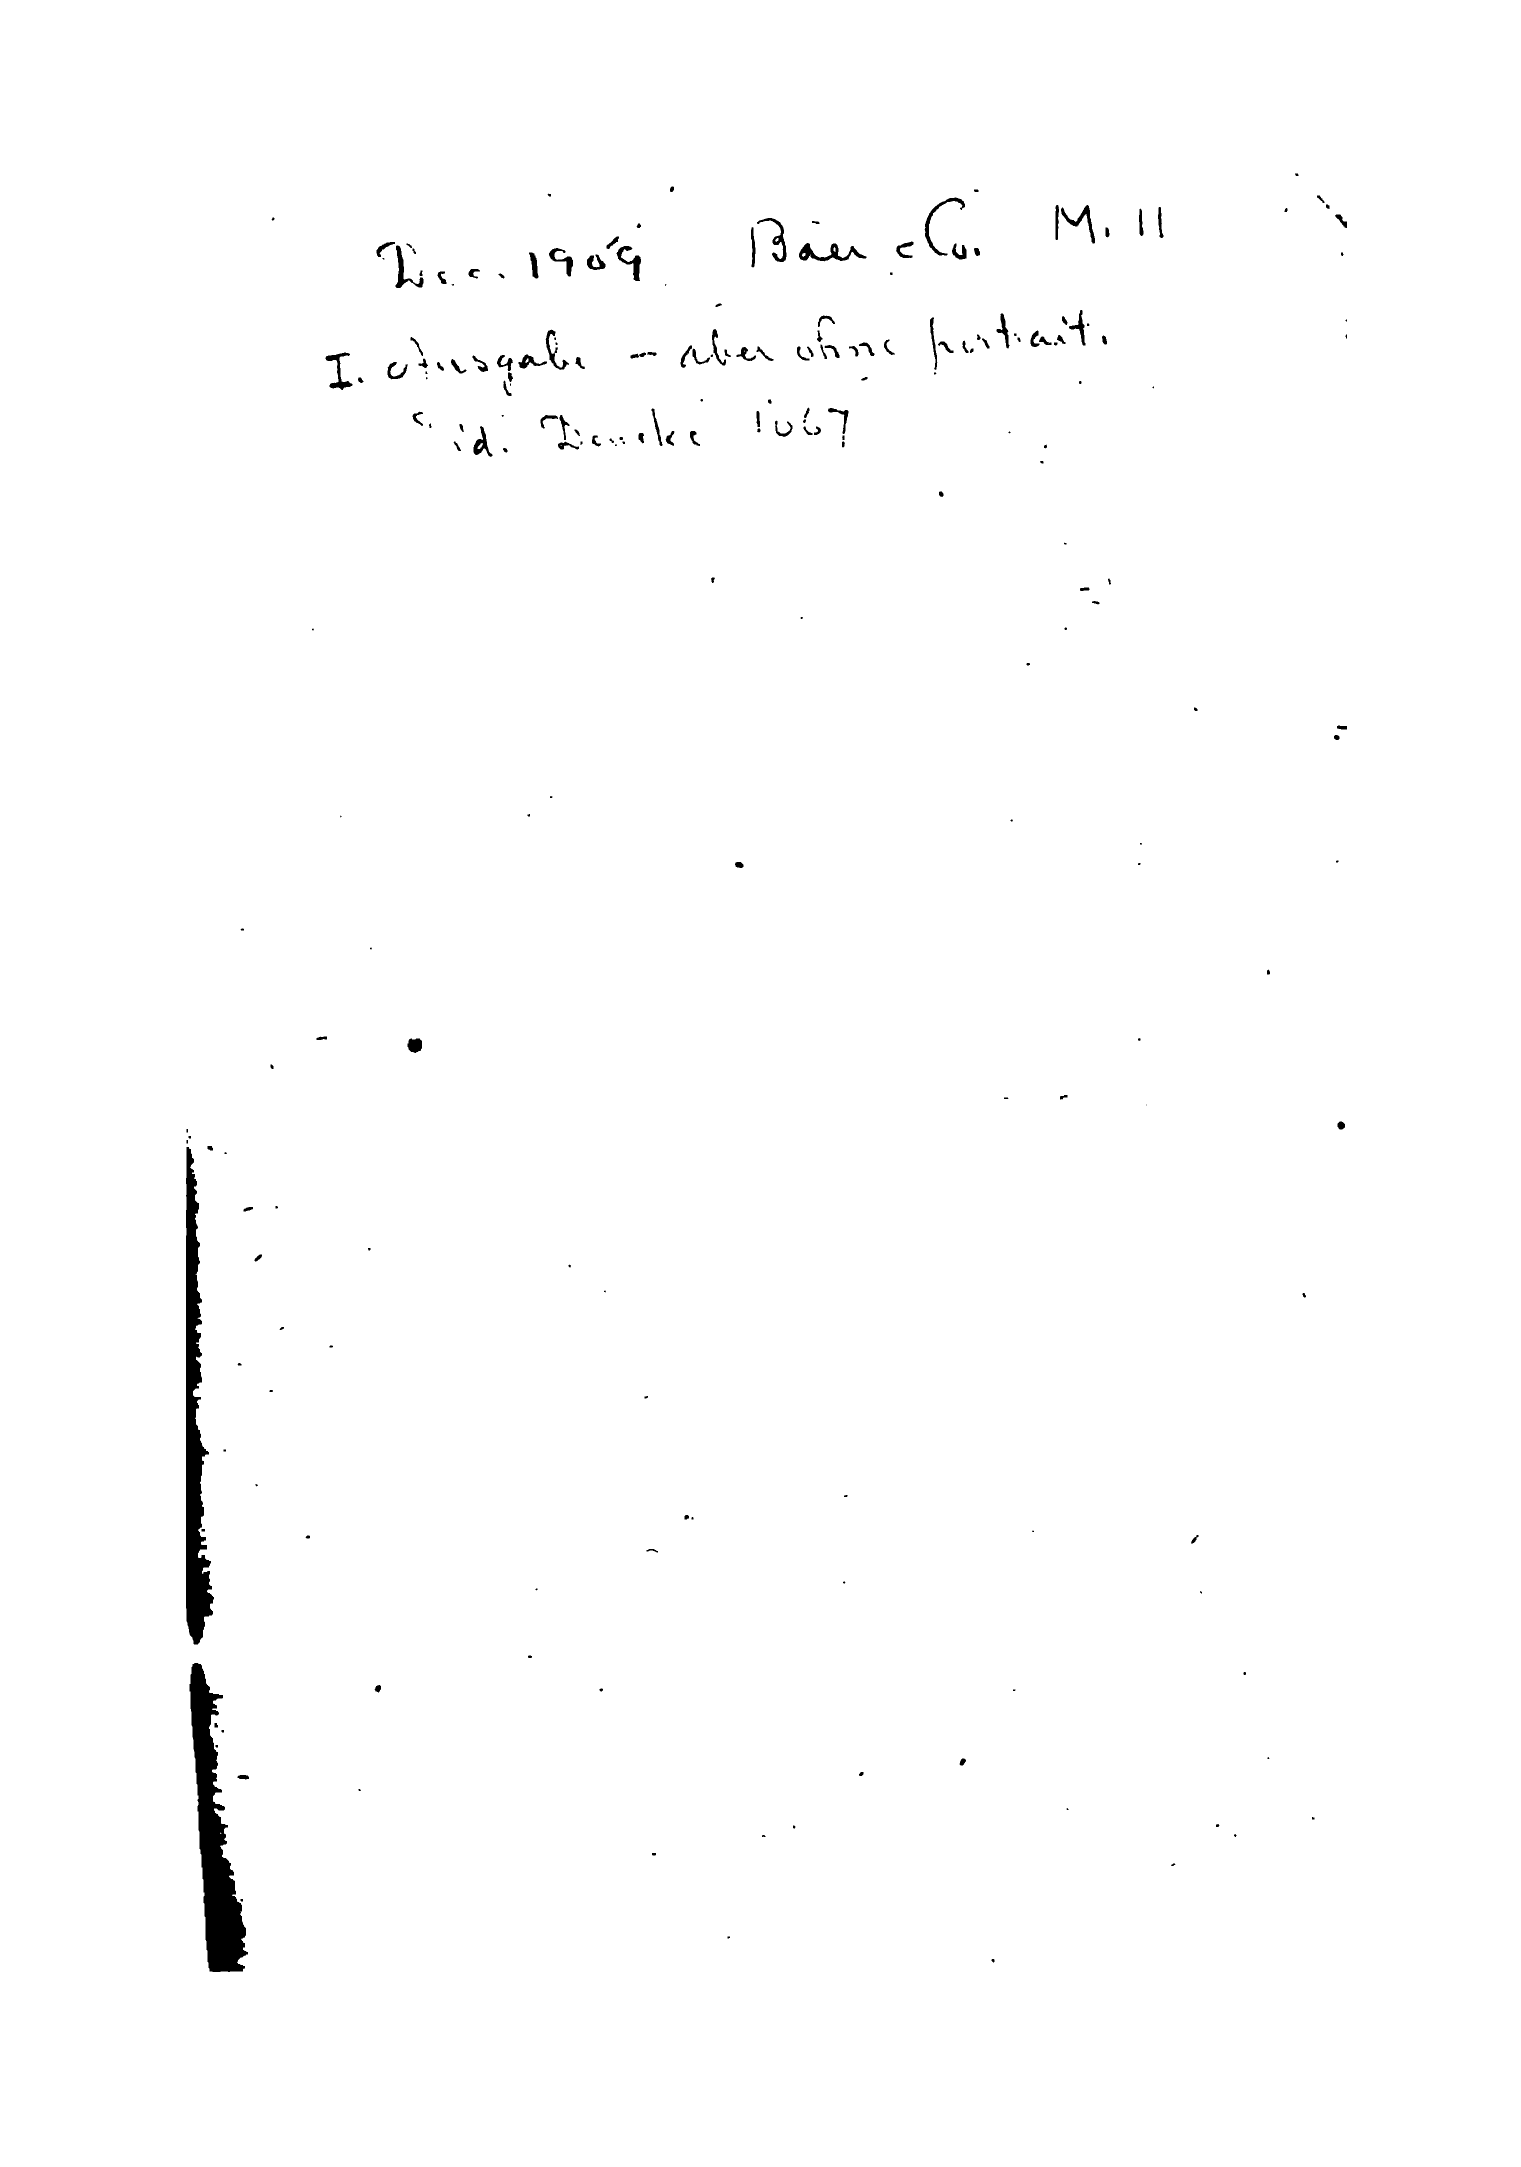 Dec. 1909 Baer & Co. M. 11
I. Ausgabe – aber ohne portrait.
id. Deneke 1067